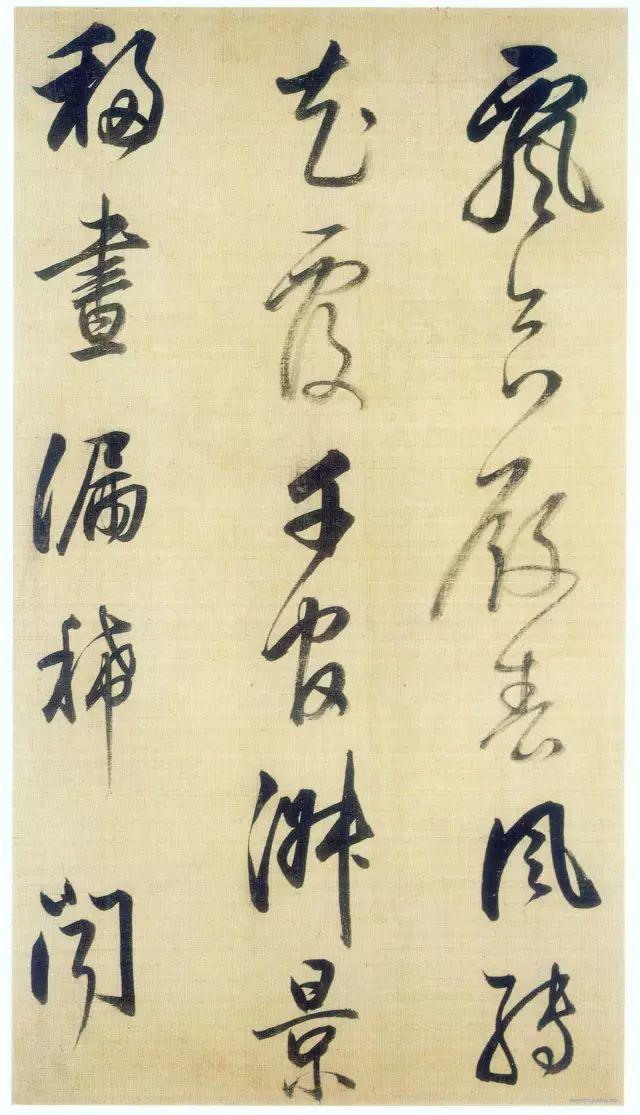 飄合殿春風轉
花覆千官淑景
移晝漏稀聞